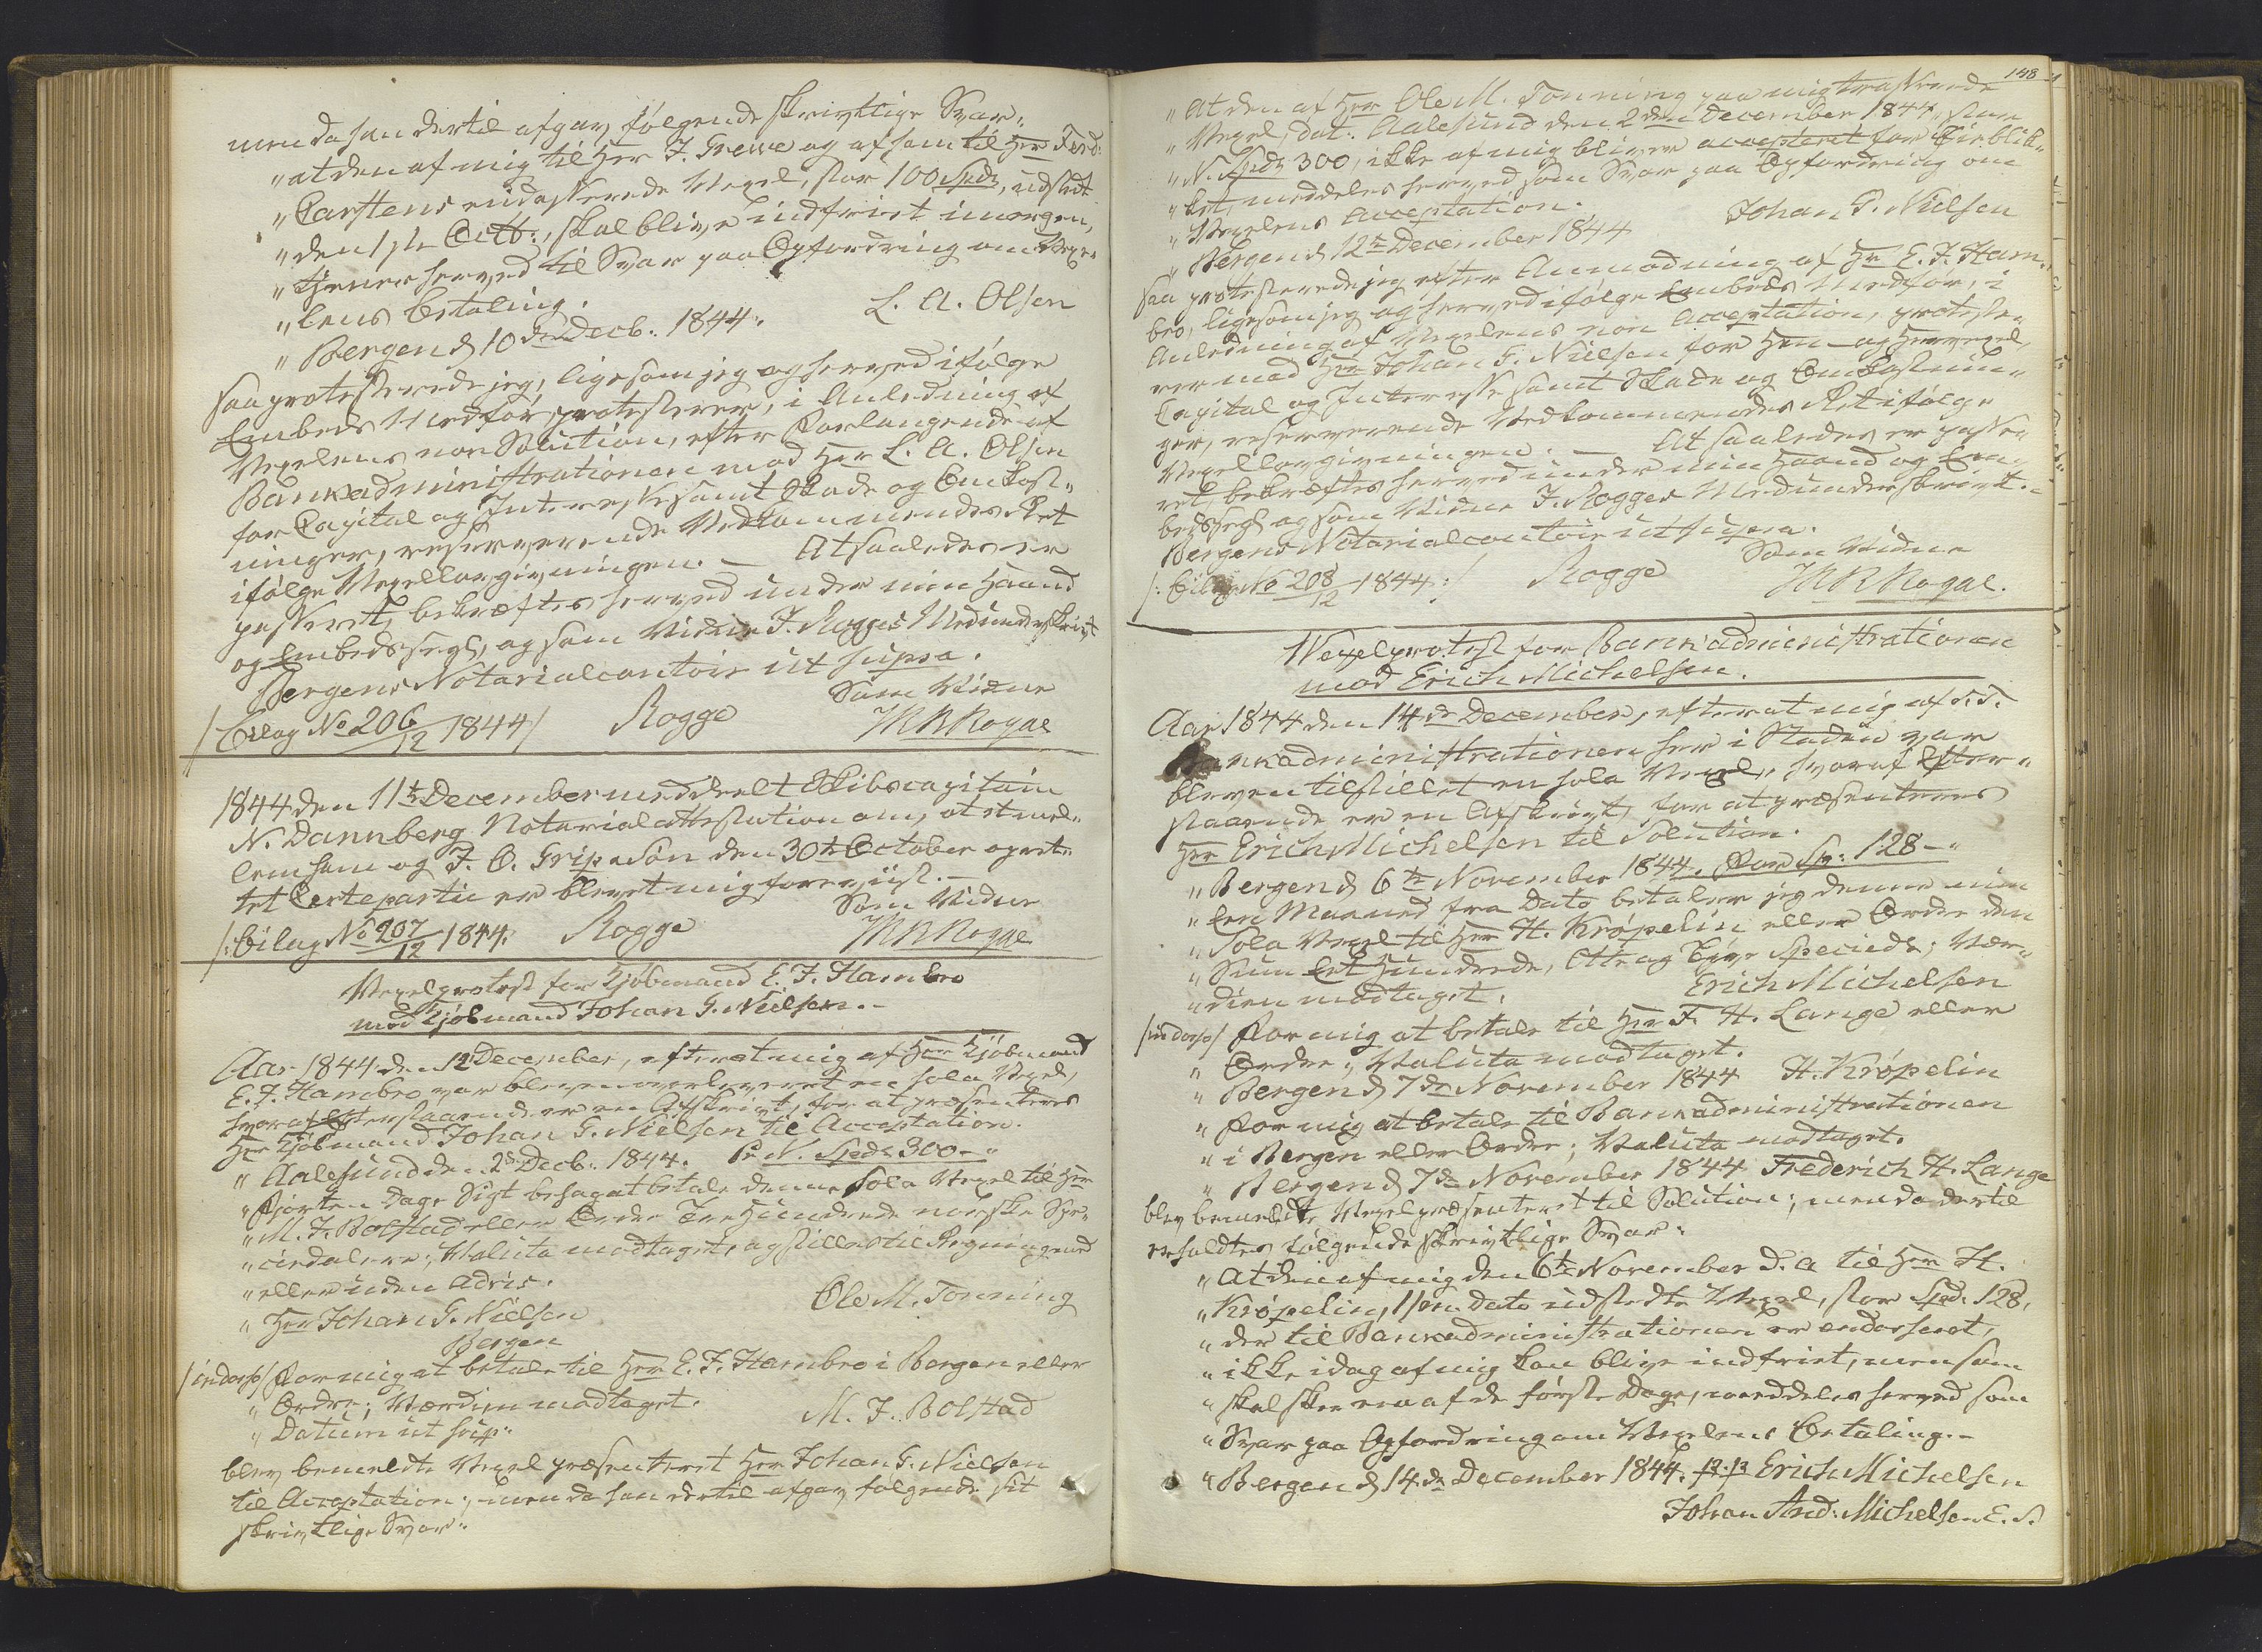 men da han dertil afgav følgende skrivtlige Svar:
"at den af mig til Herr J. Grewe og af ham til Herr Ferd:
"Carstens endosserede Vexel, stor 100 Spd, udstedt
"den 1ste Octb:, skal blive indfriet imorgen,
"tjener herved til Svar paa Opfordring om Vexe-
"lens Betaling.
"Bergen d 10de Decb: 1844. L. A. Olsen
saa protesterede jeg, ligesom jeg og herved ifølge
Embeds Medfør protesterer, i Anledning af
Vexelens non Solution, efter Forlangende af
Bankadministrationen mod Herr L. A. Olsen
for Capital og Interesse samt Skade og Omkost-
ninger, reserverende Vedkommendes Ret
ifølge Vexellovgivningen. — At saaledes er
passeret, bekræftes herved under min Haand
og Embedssegl, og som Vidne J. Rogges Medunderskrivt
Bergens Notarialcontoir ut supra.
Som Vidne
/Bilag No 206/12 1844/ Rogge
1844 den 11te December meddeelt Skibscapitain
N. Dannberg Notarialattestation om, at et mel-
lem ham og J. O. Grip & Sön den 30te October opret-
tet Certepartie er blevet mig foreviist. —
Som Vidne
/: Bilag No 207/12 1844. Rogge
Vexelprotest for Kjöbmand E. J. Hambro
mod Kjöbmand Johan G. Nielsen. —
Aar 1844 den 12 December, efterat mig af Herr Kjöbmand
E. J. Hambro var bleven overleveret en sola Vexel,
hvoraf Efterstaaende er en Afskrivt, for at præsenteres
Herr Kjöbmand Johan G. Nielsen til Acceptation.
"Aalesund den 2de Decb: 1844. Pr N. Spd 300 — "
"Fjorten Dage Sigt behag at betale denne Sola Vexel til Herr
"M. J. Bolstad eller Ordre Tre Hundrede norske Spe-
"ciedalere; Valuta modtaget, og stilles til Regning med
"eller uden Advis.
"Herr Johan G. Nielsen Ole M. Tonning
Bergen
/indorso/ For mig at betale til Herr E. J. Hambro i Bergen eller
"Ordre; Værdien modtaget.
"Datum ut sup: M. J. Bolstad
blev bemeldte Vexel præsenteret Herr Johan G. Nielsen
til Acceptation; men da han dertil afgav følgende sit
skrivtlige Svar:
148
"At den af Herr Ole M. Tonning paa mig trasserede
"Vexel, dat: Aalesund den 2den December 1844, stor
"N. Spd 300, ikke af mig bliver accepteret for Øieblik-
"ket, meddeles herved som Svar paa Opfordring om
"Vexelens Acceptation.
"Bergen d 12te December 1844 Johan G. Nielsen
saa protesterede jeg efter Anmodning af Hr E. J. Ham-
bro, ligesom jeg og herved ifølge Embeds Medfør, i
Anledning af Vexelens non Acceptation, proteste-
rer mod Herr Johan G. Nielsen for Hen- og Hervexel,
Capital og Interesse samt Skade og Omkostnin-
ger, reserverende Vedkommendes Ret ifølge
Vexellovgivningen. — At saaledes er passe-
ret, bekræftes herved under min Haand og Em-
bedssegl og som Vidne J. Rogges Medunderskrivt. —
Bergens Notarialcontoir ut supra.
Som Vidne
/: Bilag No 208/12 1844:/ Rogge
Vexelprotest for Bankadministrationen
mod Erich Michelsen.
Aar 1844 den 14de December, efterat mig af S. T.
Bankadministrationen her i Staden var
bleven tilstillet en sola Vexel, hvoraf Efter-
staaende er en Afskrivt, for at præsenteres
Herr Erich Michelsen til Solution.
"Bergen d 6te November 1844. For Sp: 128 — "
"Een Maaned fra Dato betaler jeg denne min
"Sola Vexel til Herr H. Krøpelin eller Ordre den
"Sum Eet Hundrede, Otte og Tyve Speciedlr; Vær-
"dien modtaget. Erich Michelsen
/indorso/ For mig at betale til Herr F. H. Lange eller
"Ordre; Valuta modtaget.
"Bergen d 7de November 1844 H. Krøpelin
"For mig at betale til Bankadministrationen
"i Bergen eller Ordre; Valuta modtaget.
"Bergen d 7de November 1844 Frederich H. Lange
blev bemeldte Vexel præsenteret til Solution; men da dertil
erholdtes følgende skrivtlige Svar:
"At den af mig den 6te November d. A. til Herr H.
"Krøpelin, 1 Mn. Dato udstedte Vexel, stor Spd. 128,
"der til Bankadministrationen er endosseret,
"ikke idag af mig kan blive indfriet, men som
"skal skee een af de første Dage, meddeles herved som
"Svar paa Opfordring om Vexelens Betaling. —
"Bergen d 14de December 1844. p.p. Erich Michelsen
Johan And: Michelsen E. S.